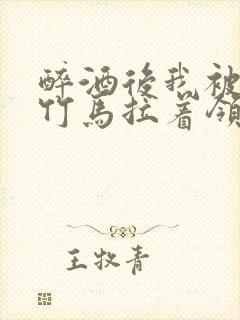 醉酒後我被
竹馬拉着領
王牧青